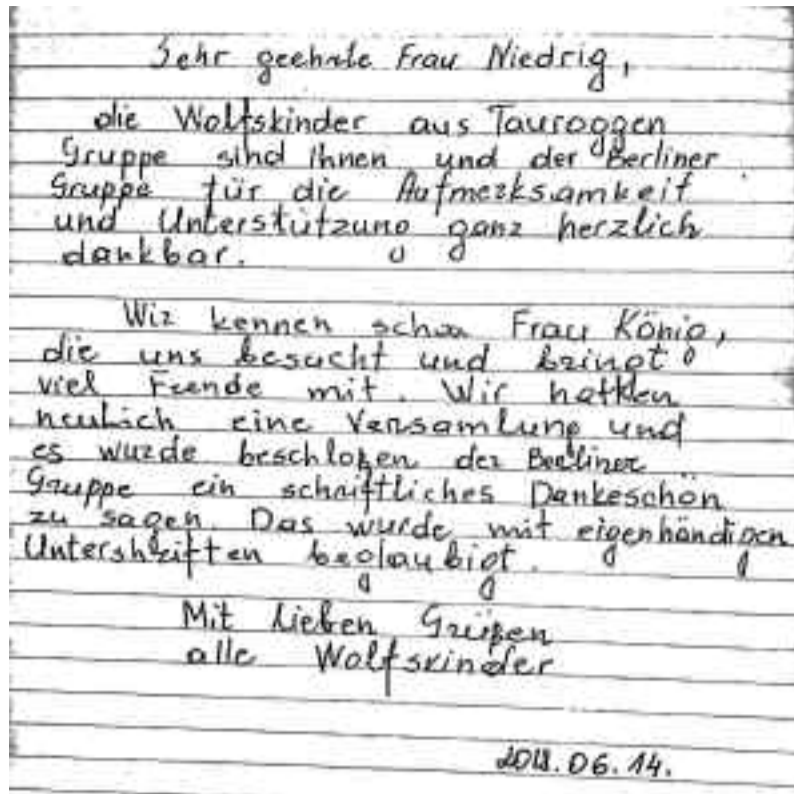 Sehr geehrte Frau Niedrig,
die Wolfskinder aus Tauroggen
Gruppe sind Ihnen und der Berliner
Gruppe für die Aufmerksamkeit
und Unterstützung ganz herzlich
dankbar.
Wir kennen schon Frau König,
die uns besucht und bringt
viel Freude mit. Wir hatten
neulich eine Versamlung und
es wurde beschloßen der Berliner
Gruppe ein schriftliches Dankeschön
zu sagen. Das wurde mit eigenhändigen
Untershriften beglaubigt.
Mit lieben Grüßen
alle Wolfskinder
06.14.